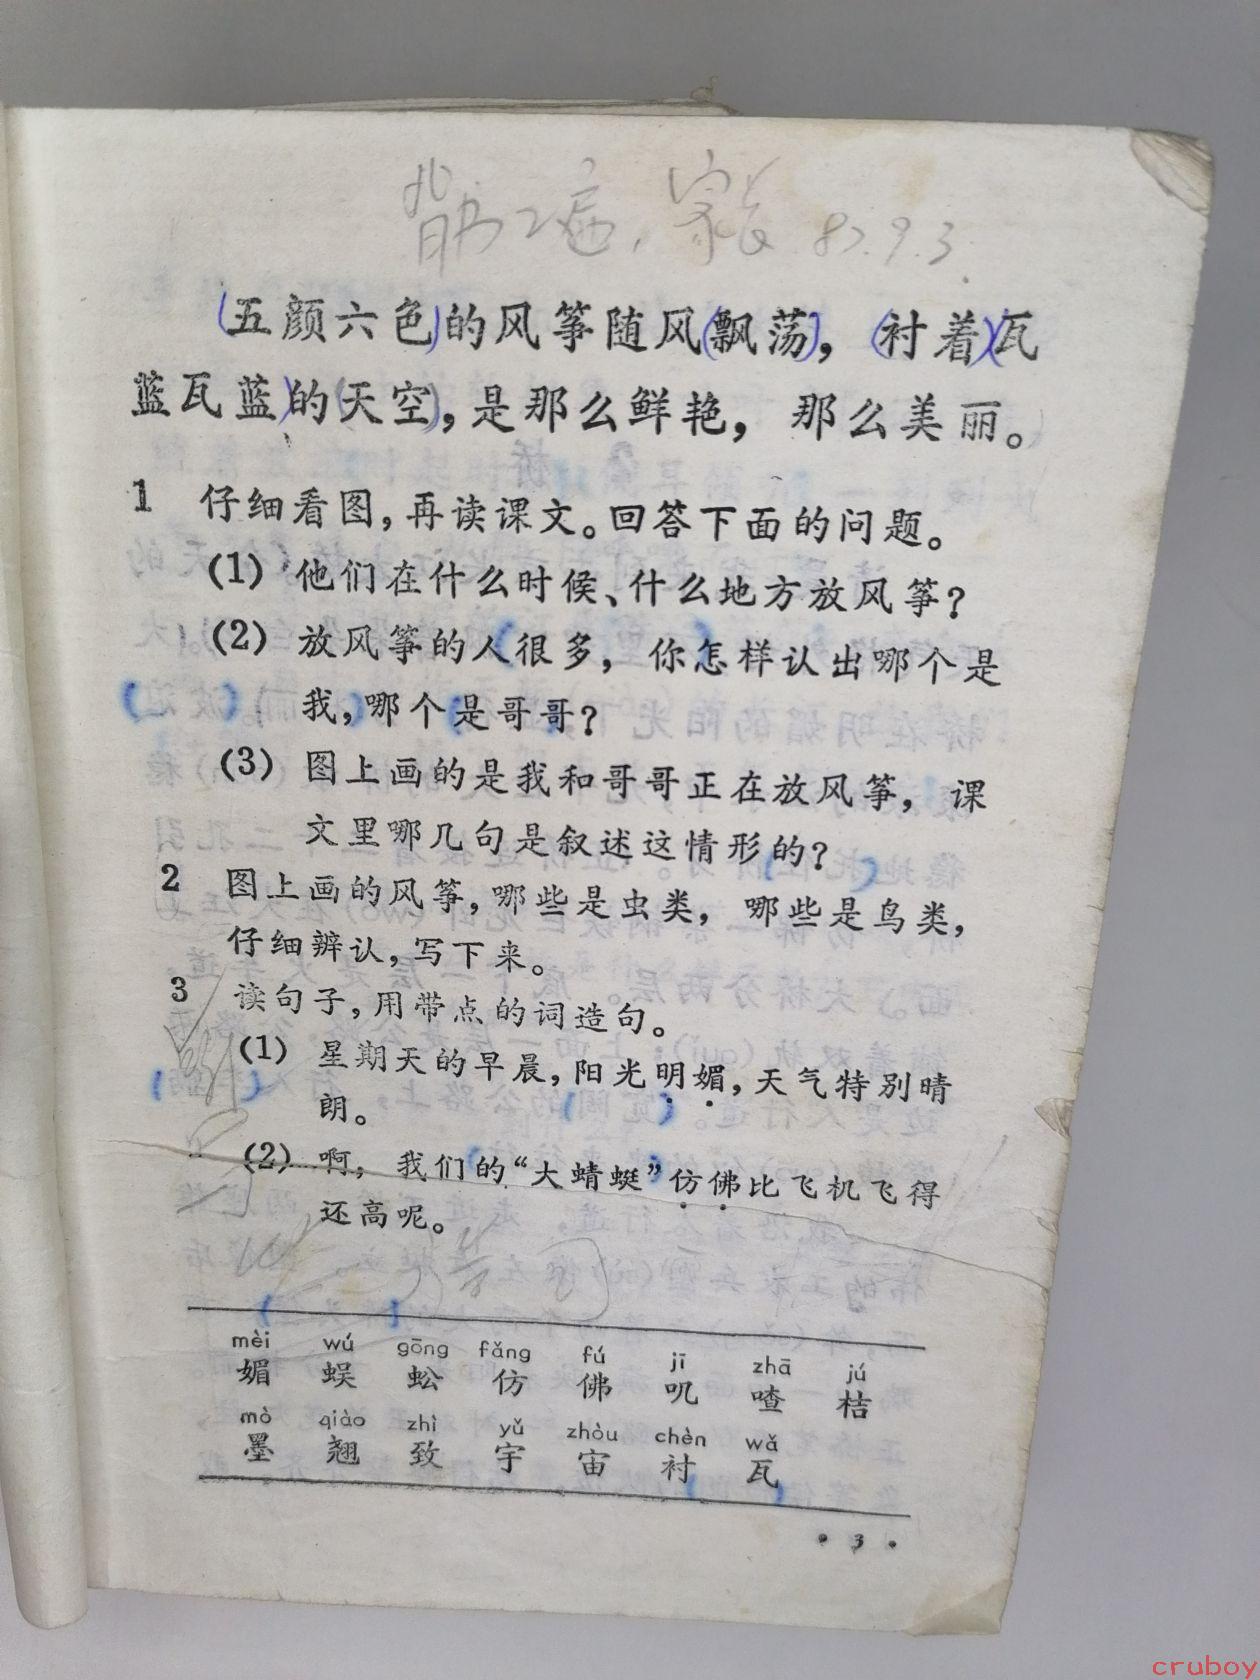 背书2遍，家长 87.9.3.
五颜六色的风筝随风飘荡，衬着瓦
蓝瓦蓝的天空，是那么鲜艳，那么美丽。
1 仔细看图，再读课文。回答下面的问题。
(1) 他们在什么时候、什么地方放风筝？
(2) 放风筝的人很多，你怎样认出哪个是
我，哪个是哥哥？
(3) 图上画的是我和哥哥正在放风筝，课
文里哪几句是叙述这情形的？
2 图上画的风筝，哪些是虫类，哪些是鸟类，
仔细辨认，写下来。
3 读句子，用带点的词造句。
(1) 星期天的早晨，阳光明媚，天气特别晴
朗。
(2) 啊，我们的“大蜻蜓”仿佛比飞机飞得
还高呢。
mèi wú gōng fǎng fú jī zhā jú
媚 蜈 蚣 仿 佛 叽 喳 桔
mò qiào zhì yǔ zhòu chèn wǎ
墨 翘 致 宇 宙 衬 瓦
·3·
cruboy